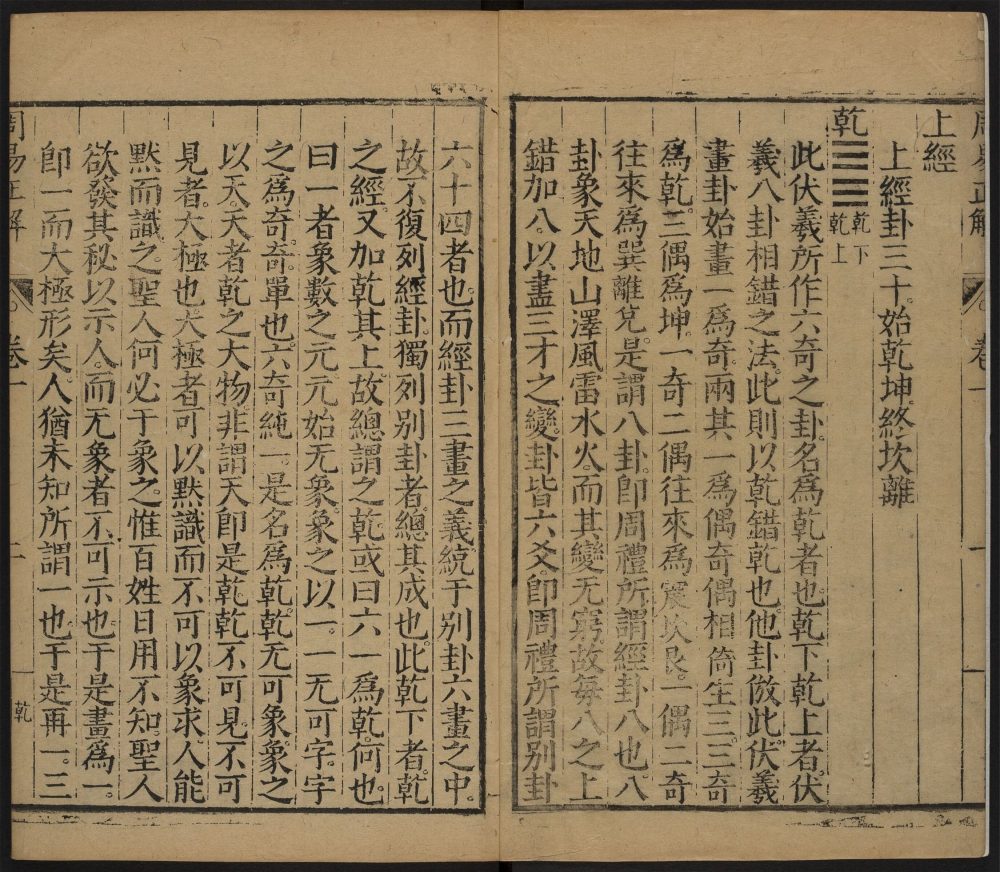 周易正解 卷一 一
上經
上經卦三十。始乾坤。終坎離
乾 乾下 乾上
此伏羲所作六奇之卦。名爲乾者也。乾下乾上者。伏
羲八卦相錯之法。此則以乾錯乾也。他卦倣此。伏羲
畫卦始畫一爲奇。兩其一爲偶。奇偶相倚生三。三奇
爲乾。三偶爲坤。一奇二偶往來爲震坎艮。一偶二奇
往來爲巽離兌。是謂八卦。卽周禮所謂經卦八也。八
卦象天地山澤風雷水火。而其變无窮。故每八之上
錯加八。以盡三才之變。卦皆六爻。卽周禮所謂别卦
六十四者也。而經卦三畫之義。統于别卦六畫之中。
故不復列經卦。獨列别卦者。總其成也。此乾下者乾
之經。又加乾其上。故總謂之乾。或曰六一爲乾。何也。
曰一者象數之元。元始无象。象之以一。一无可字。字
之爲奇。奇單也。六奇純一。是名爲乾。乾无可象。象之
以天。天者乾之大物。非謂天卽是乾。乾不可見。不可
見者。大極也。大極者可以默識而不可以象求。人能
默而識之。聖人何必于象之。惟百姓日用不知。聖人
欲發其秘以示人。而无象者不可示也。于是畫爲一。
卽一而大極形矣。人猶未知所謂一也。于是再一。三
周易正解 卷一 二 乾